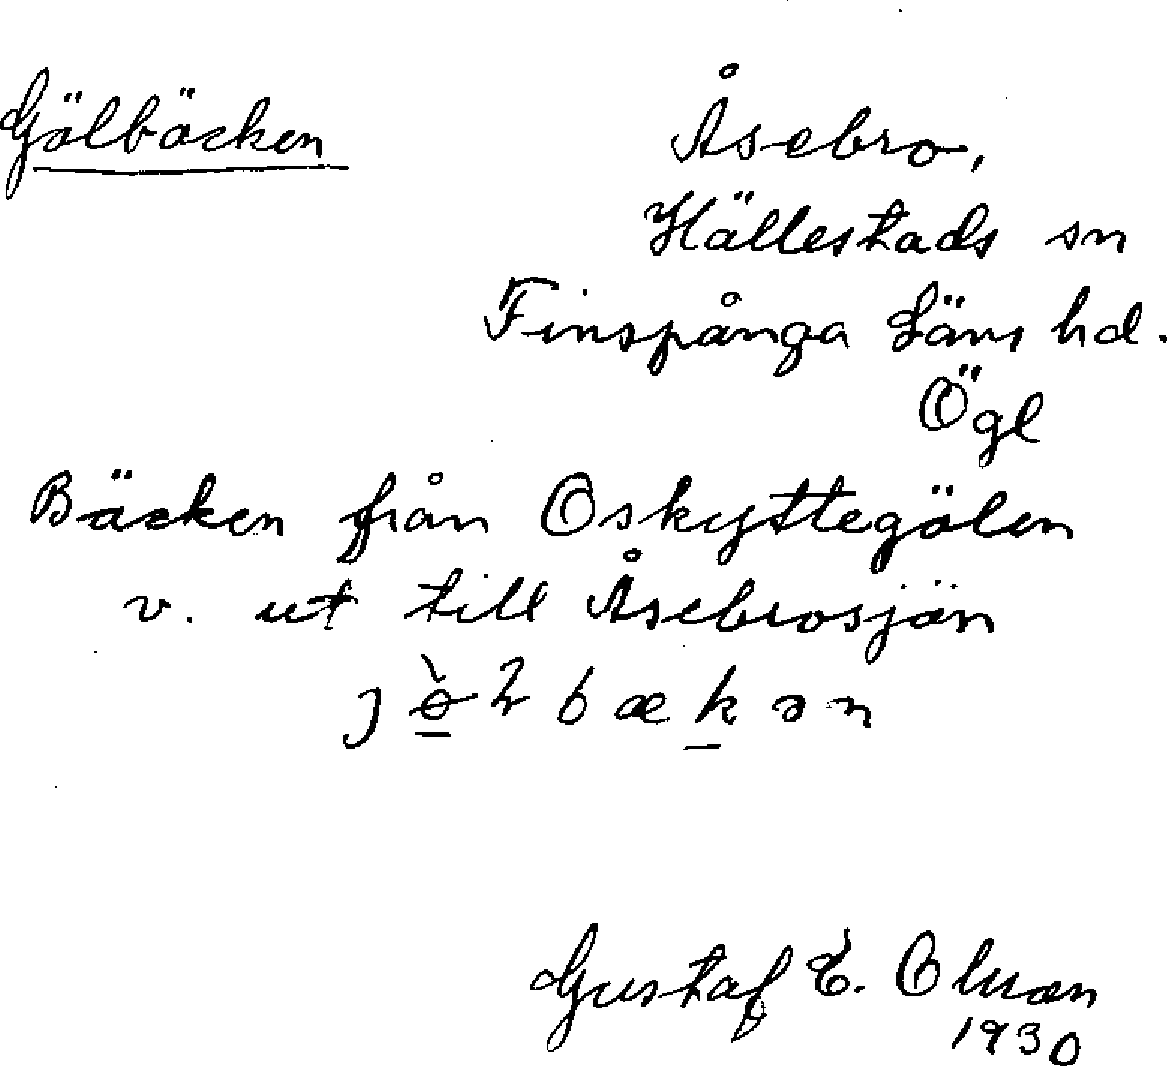 Gölbäcken
Åsebro,
Hällestads sn
Finspånga Läns hd.
Ögl
Bäcken från Oskyttegölen
v. ut till Åsebrosjön
Gustaf E. Olson
1930